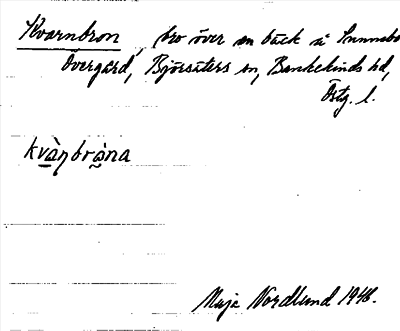 Kvarnbron, bro över en bäck å Sunnebo
Övergård, Björsäters sn, Bankekinds hd,
Östg. l.
kvàṇbrǻna
Maja Nordlund 1948.